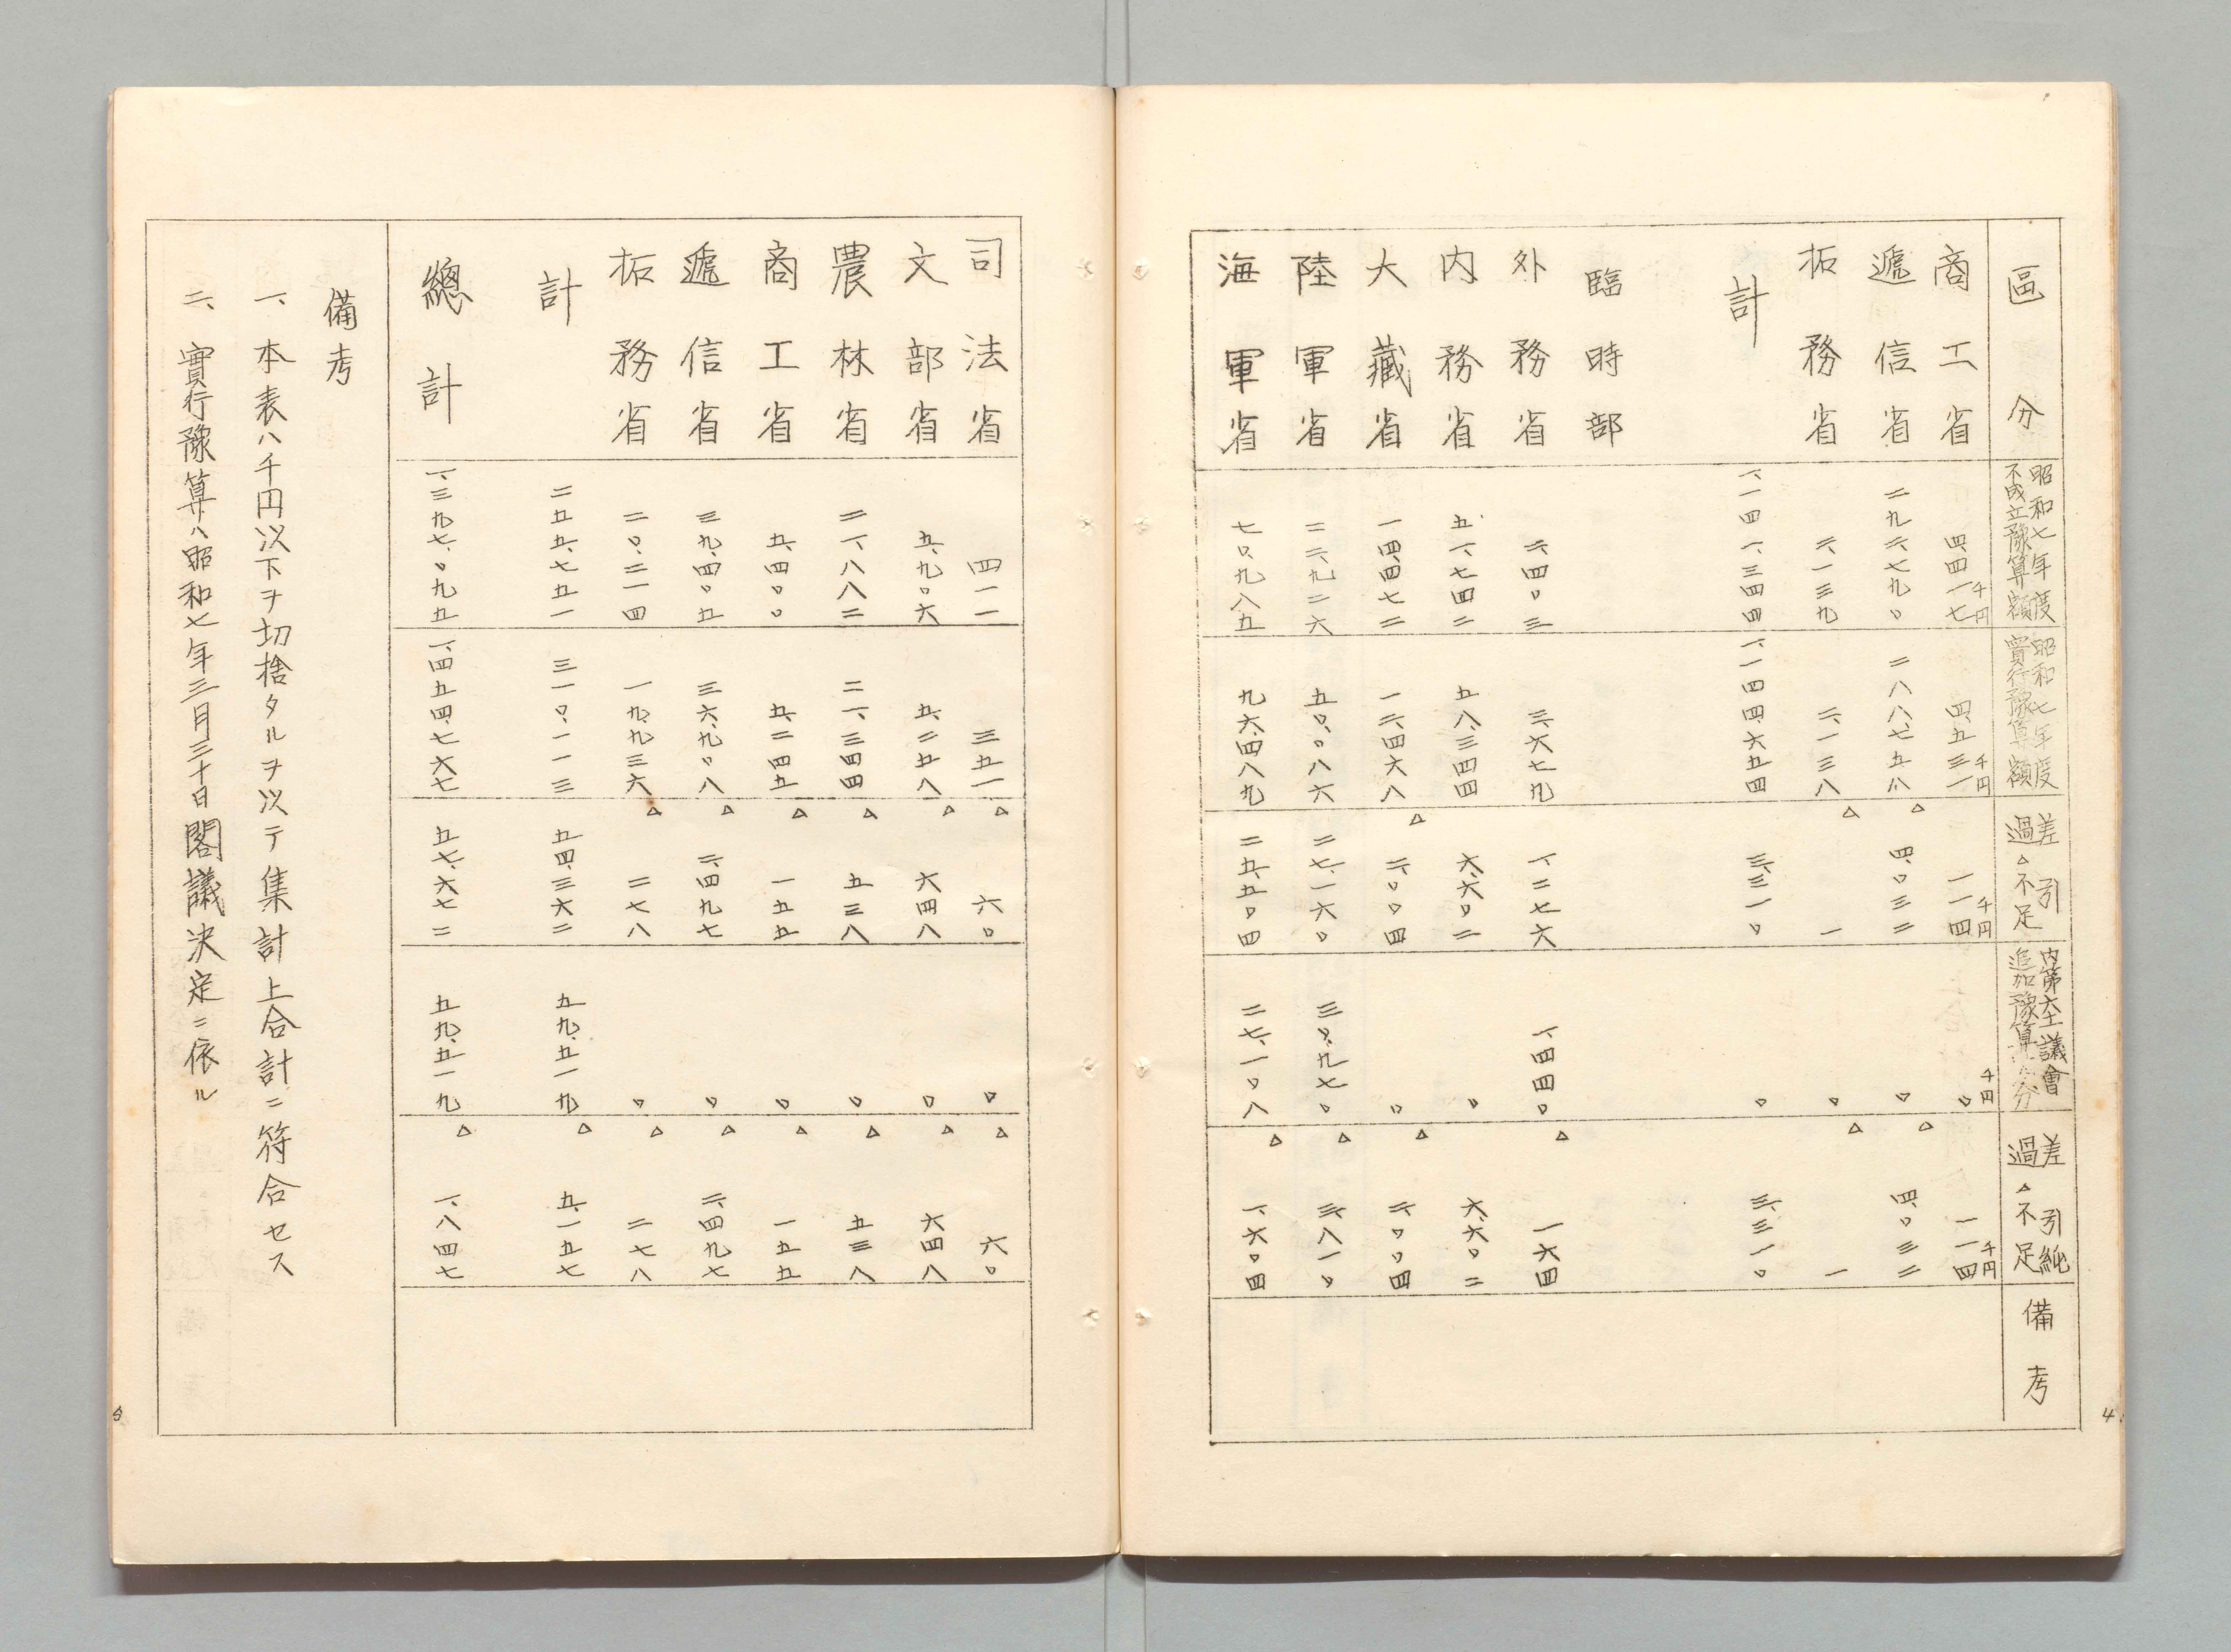 區分 昭和七年度不成立豫算額 昭和七年度實行豫算額 差引過△不足 内第六十一議會追加豫算ノ分 差引純過△不足 備考
商工省 四、四一七千円 四、五三一千円 一一四千円 〇千円 一一四千円
遞信省 二九二、七九〇 二八八、七五八 △四、〇三二 〇 △四、〇三二
拓務省 二、一三九 二、一三八 △一 〇 △一
計 一、一四一、三四四 一、一四四、六五四 三、三一〇 〇 三、三一〇
臨時部
外務省 二、四〇三 三、六七九 一、二七六 一、四四〇 △一六四
内務省 五一、七四二 五八、三四四 六、六〇二 〇 六、六〇二
大藏省 一四、四七二 一二、四六八 △二、〇〇四 〇 △二、〇〇四
陸軍省 二二、九二六 五〇、〇八六 二七、一六〇 三〇、九七〇 △三、八一〇
海軍省 七〇、九八五 九六、四八九 二五、五〇四 二七、一〇八 △一、六〇四
4
司法省 四一一 三五一 △六〇 〇 △六〇
文部省 五、九〇六 五、二五八 △六四八 〇 △六四八
農林省 二一、八八二 二一、三四四 △五三八 〇 △五三八
商工省 五、四〇〇 五、二四五 △一五五 〇 △一五五
遞信省 三九、四〇五 三六、九〇八 △二、四九七 〇 △二、四九七
拓務省 二〇、二一四 一九、九三六 △二七八 〇 △二七八
計 二五五、七五一 三一〇、一一三 五四、三六二 五九、五一九 △五、一五七
總計 一、三九七、〇九五 一、四五四、七六七 五七、六七二 五九、五一九 △一、八四七
備考
一、本表ハ千円以下ヲ切捨タルヲ以テ集計上合計ニ符合セス
二、實行豫算ハ昭和七年三月三十日閣議決定ニ依ル
5